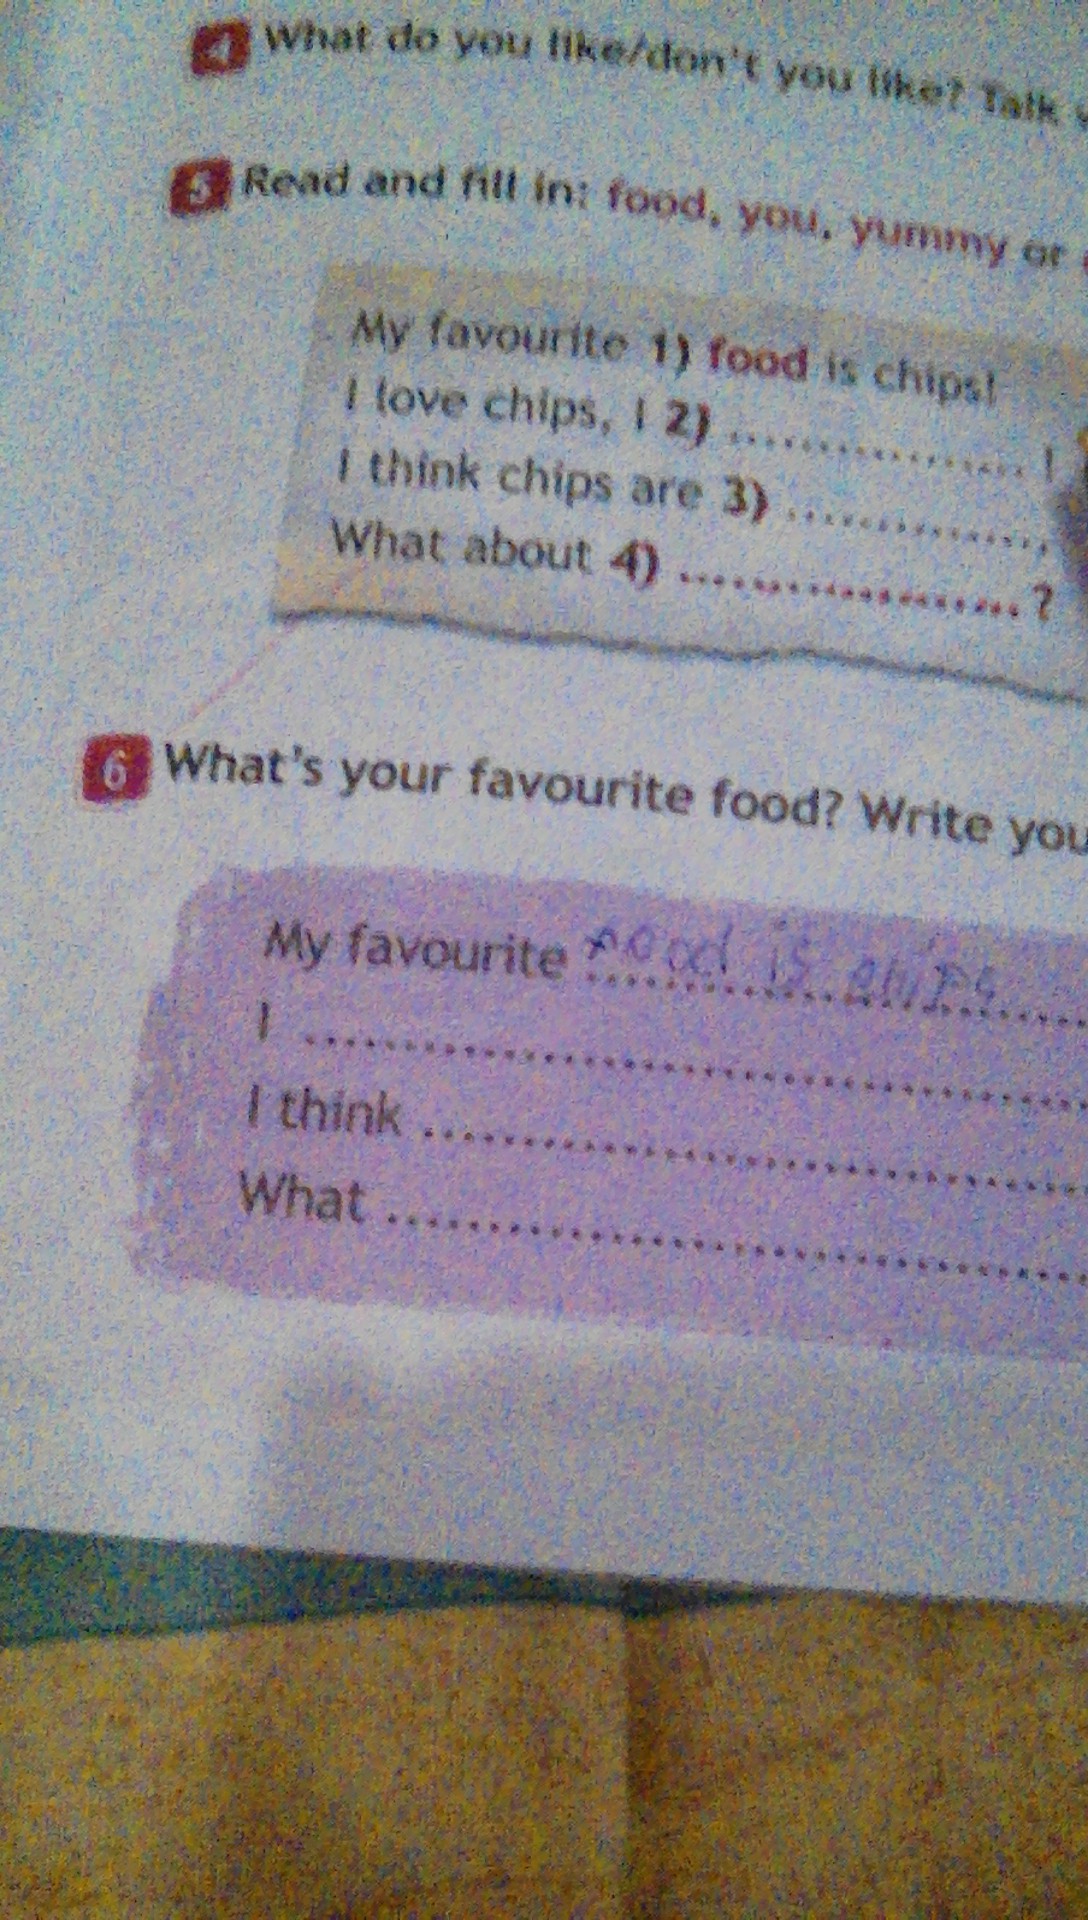 4 What do you like/don't you like? Talk
5 Read and fill in: food, you, yummy or
My favourite 1) food is chips!
I love chips, I 2) .................... !
I think chips are 3) ....................
What about 4) .................... ?
6 What's your favourite food? Write you
My favourite food is chips
I ....................
I think ....................
What ....................